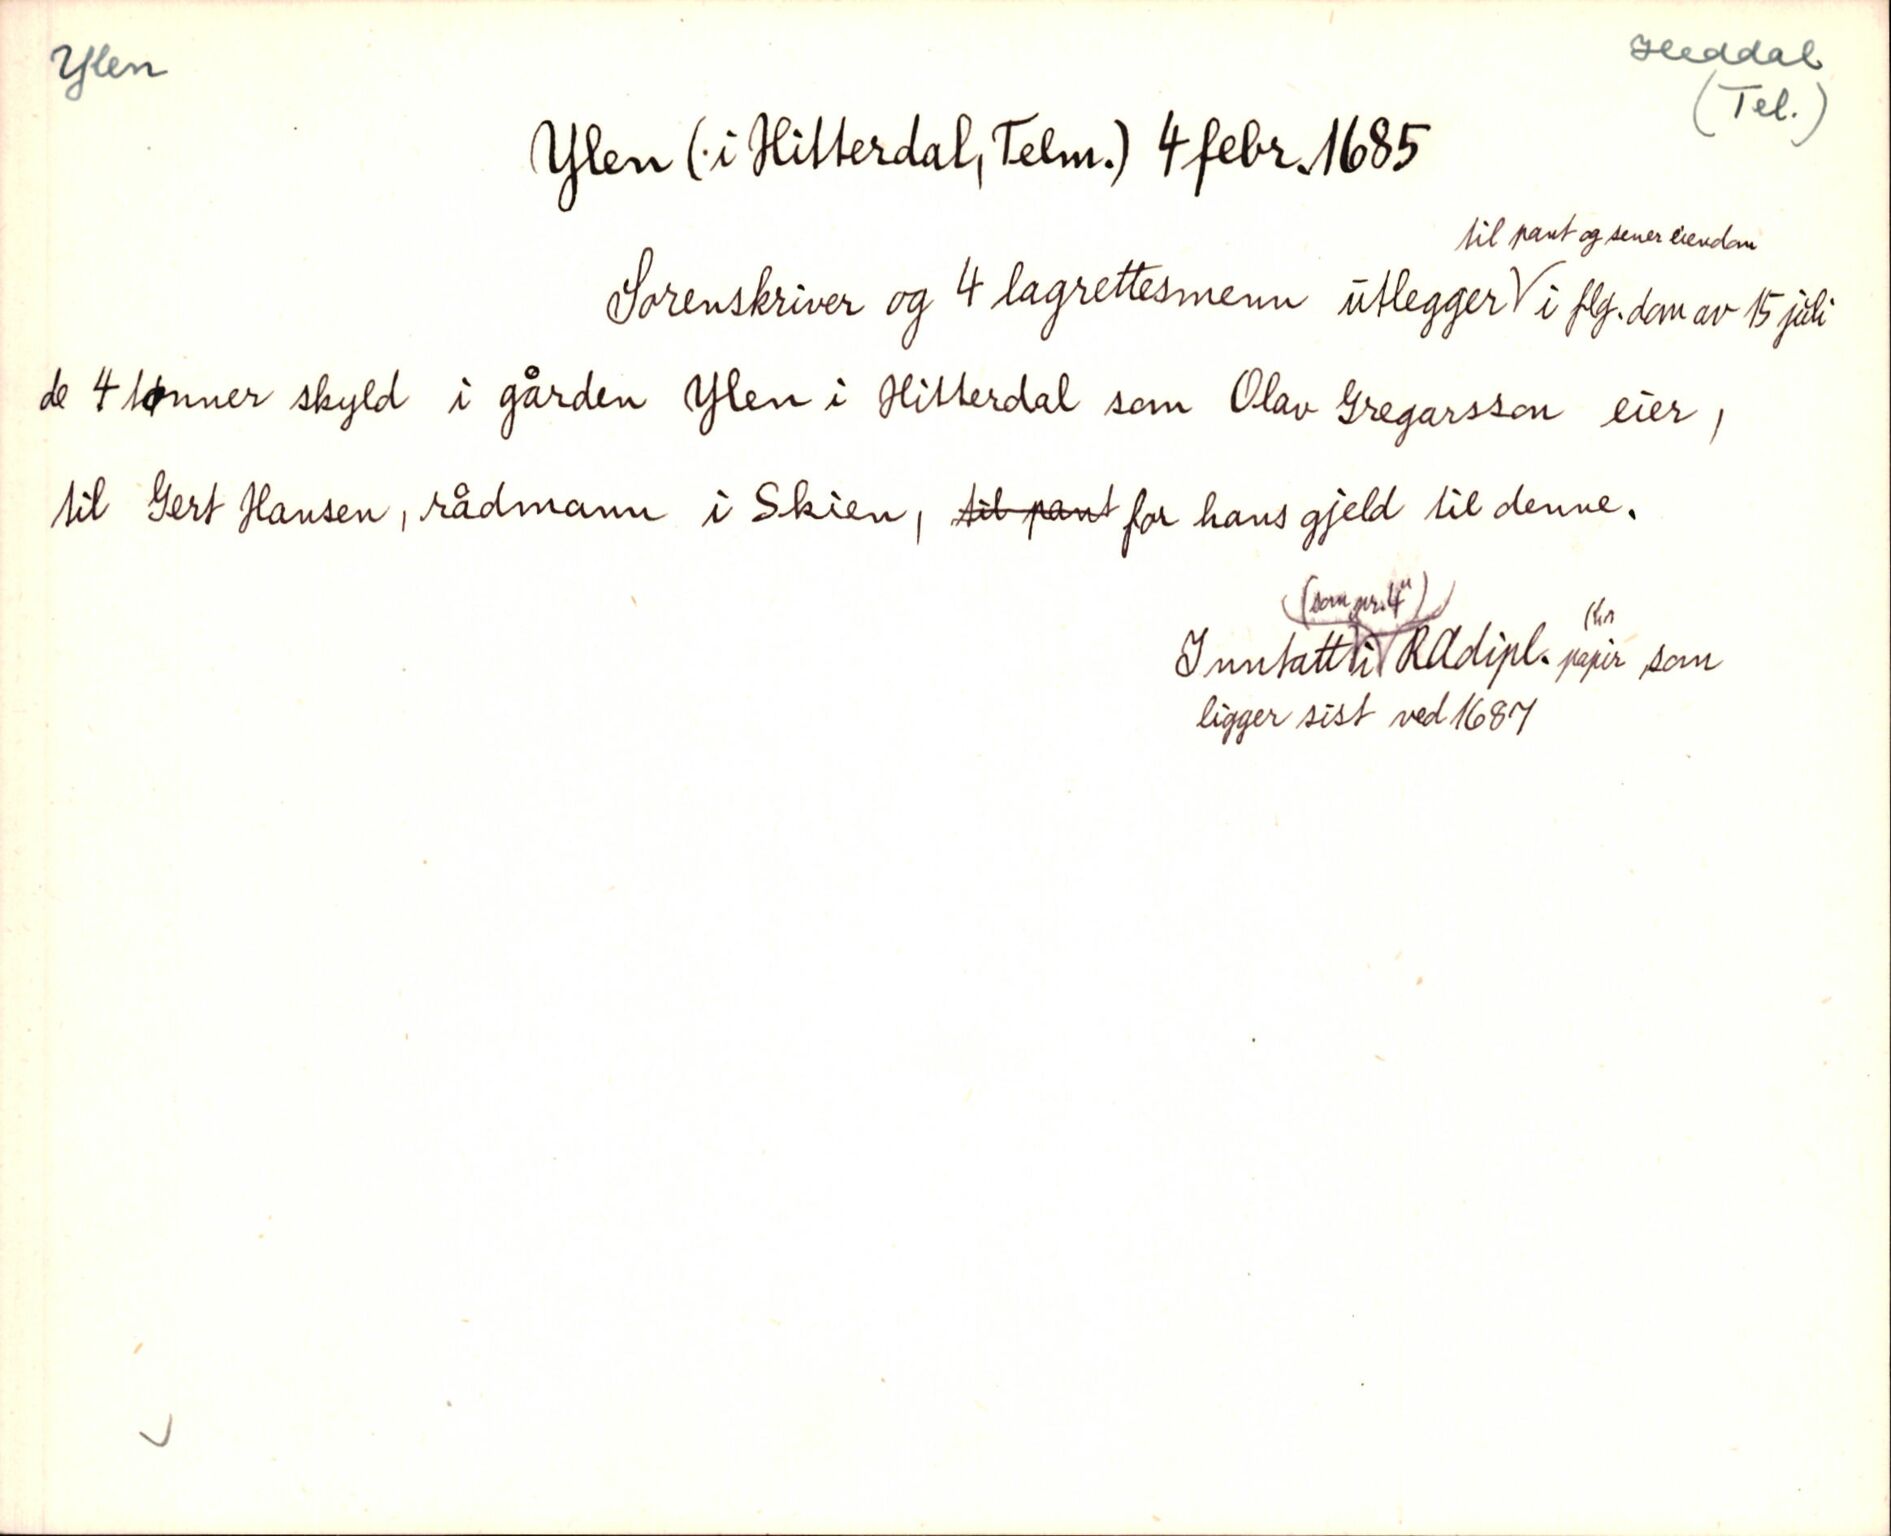 Ylen
Heddal
(Tel.)
Ylen (: i Hitterdal, Telm.) 4 febr. 1685
til pant og sener eiendom
Sorenskriver og 4 lagrettesmenn utlegger V i flg. dom av 15 juli
de 4 tønner skyld i gården Ylen i Hitterdal som Olav Gregarsson eier,
til Gert Hansen, rådmann i Skien, til pant for hans gjeld til denne.
(som nr. 4)
Inntatt i RAdipl. papir som
ligger sist ved 1687